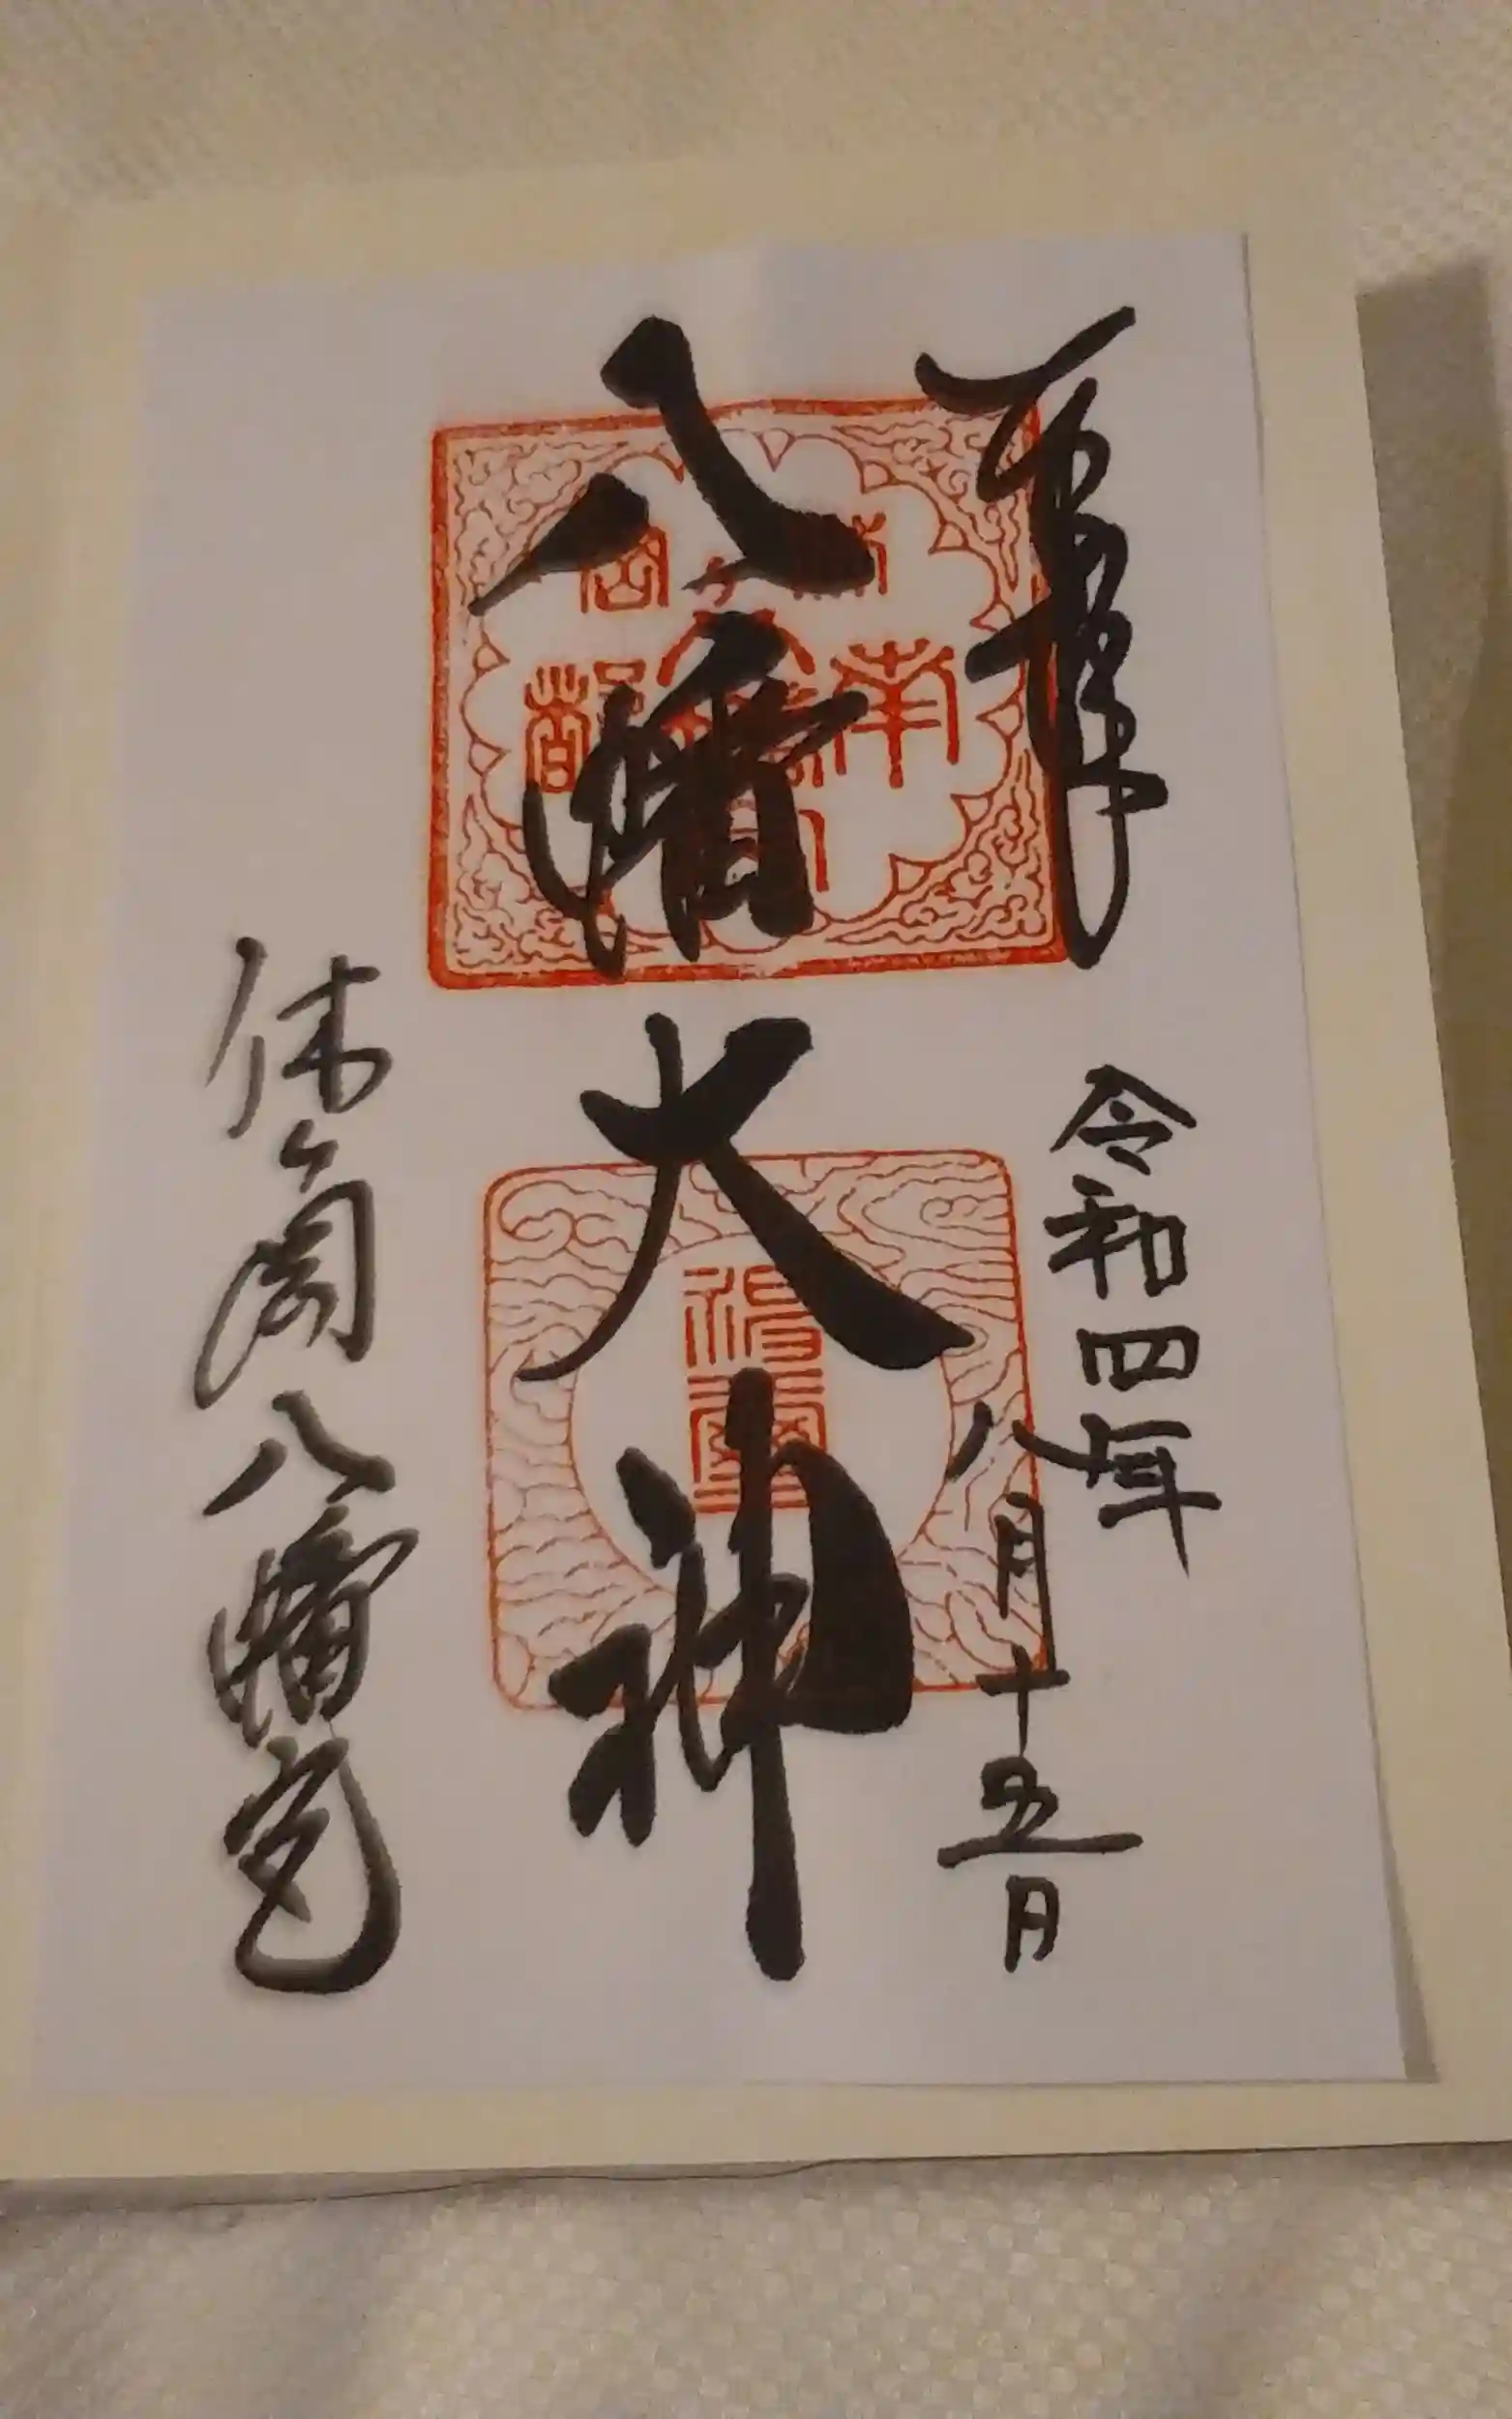 奉拝
令和四年
八月十五日
八幡大神
休ヶ岡八幡宮
南都